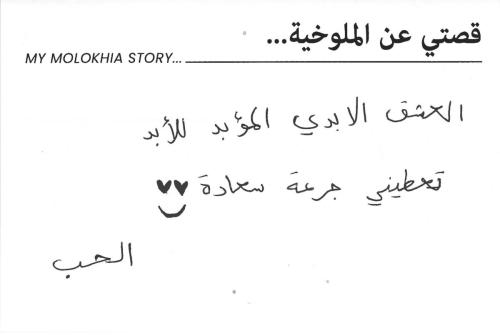 قصتي عن الملوخية...
MY MOLOKHIA STORY...
العشق الابدي المؤبد للأبد
تعطيني جرعة سعادة
الحب